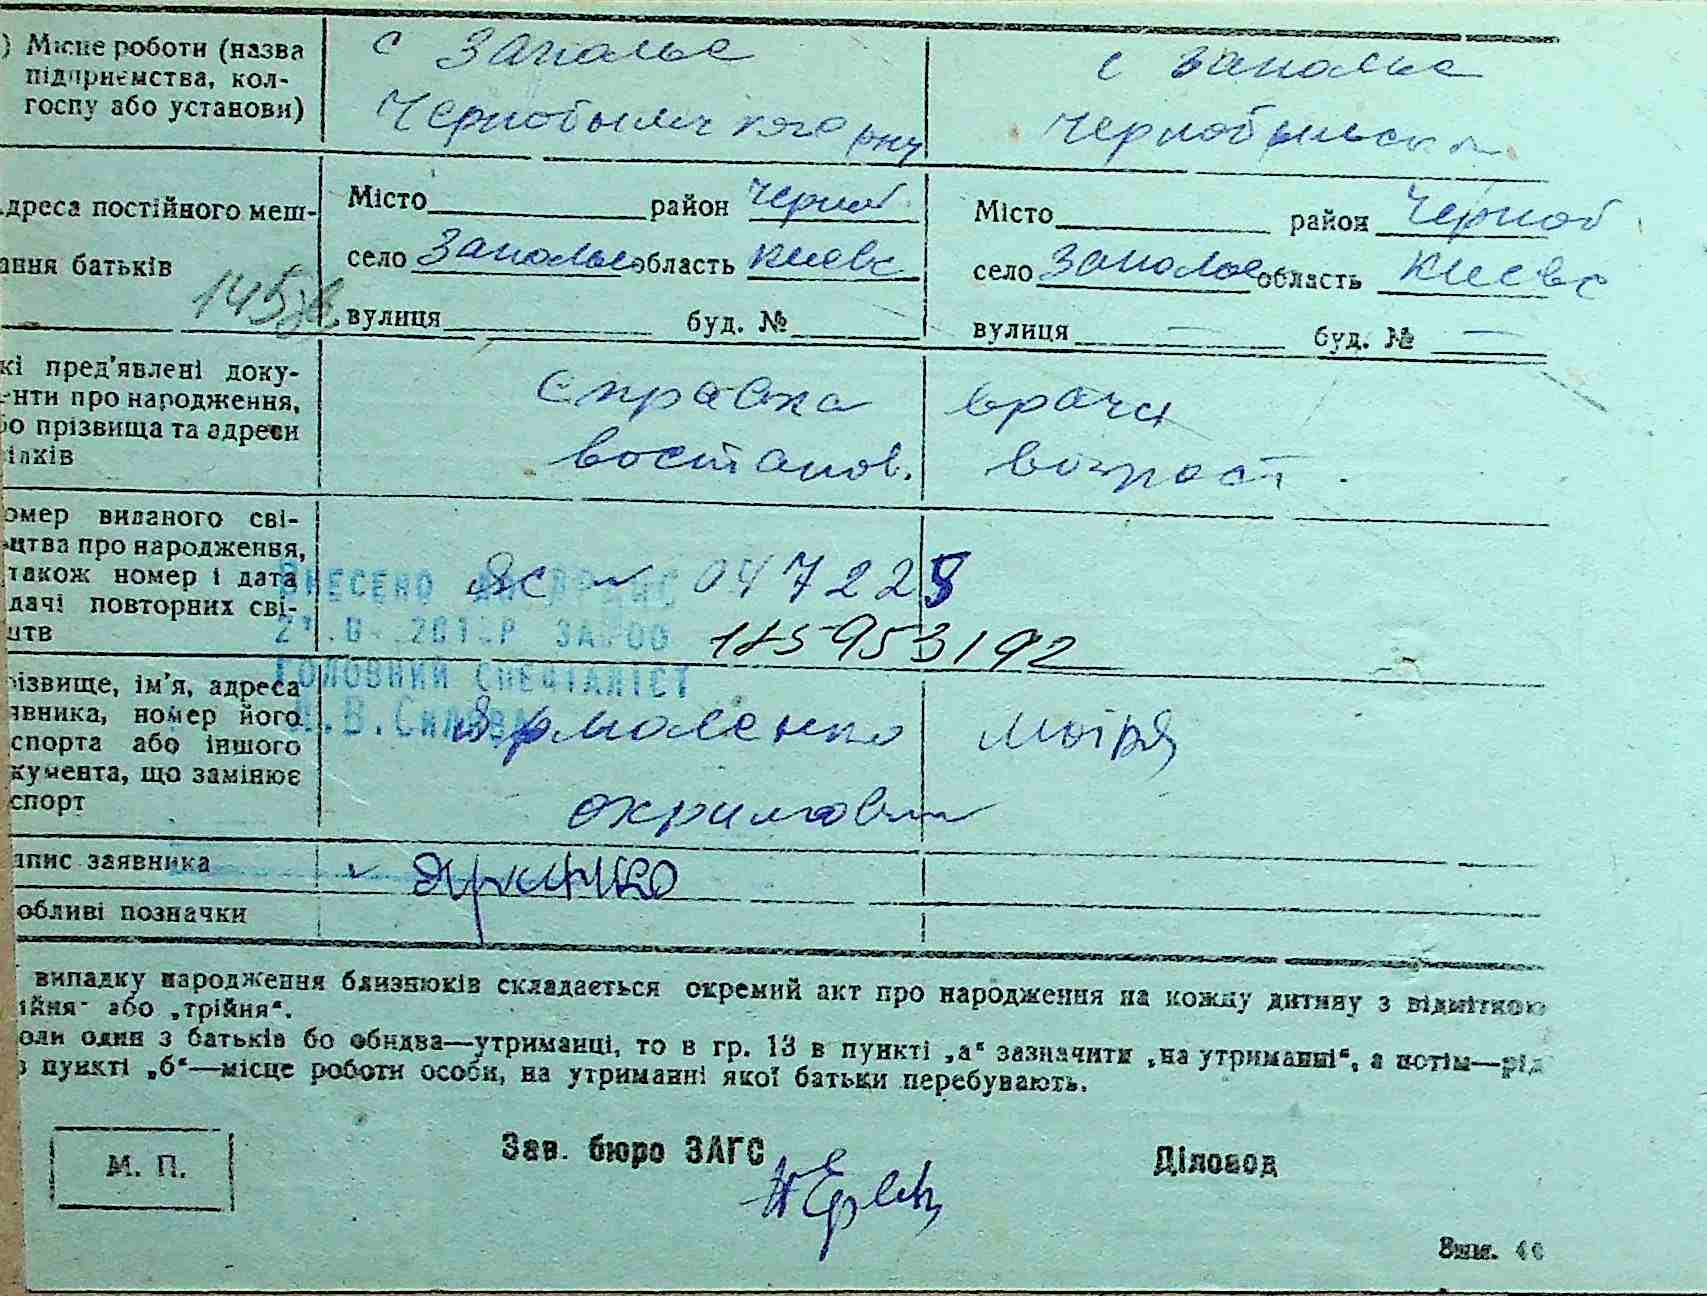 ) Місце роботи (назва підприємства, колгоспу або установи)
с Заполье
Чернобыльского р-ну
с Заполье
Чернобыльск
дреса постійного меш-
ання батьків
145
Місто район Черноб
село Заполье область Киевс
вулиця буд. №
Місто район Черноб
село Заполье область Киевс
вулиця — буд. № —
кі пред'явлені доку-
енти про народження,
о прізвища та адреси
ків
справка врача
востанов. возраст.
омер виданого сві-
цтва про народження,
також номер і дата
дачі повторних сві-
цтв
ЯС № 047228
185953192
ВНЕСЕНО
ГОЛОВНИЙ СПЕЦІАЛІСТ
різвище, ім'я, адреса
явника, номер його
спорта або іншого
кумента, що замінює
спорт
Ярмоленко
пис заявника
обливі позначки
випадку народження близнюків складається окремий акт про народження на кожну дитину з відміткою
йня" або „трійня“.
оли один з батьків бо обидва—утриманці, то в гр. 13 в пункті „а“ зазначити „на утриманні“, а потім—рід
в пункті „б“—місце роботи особи, на утриманні якої батьки перебувають.
М. П.
Зав. бюро ЗАГС
Діловод